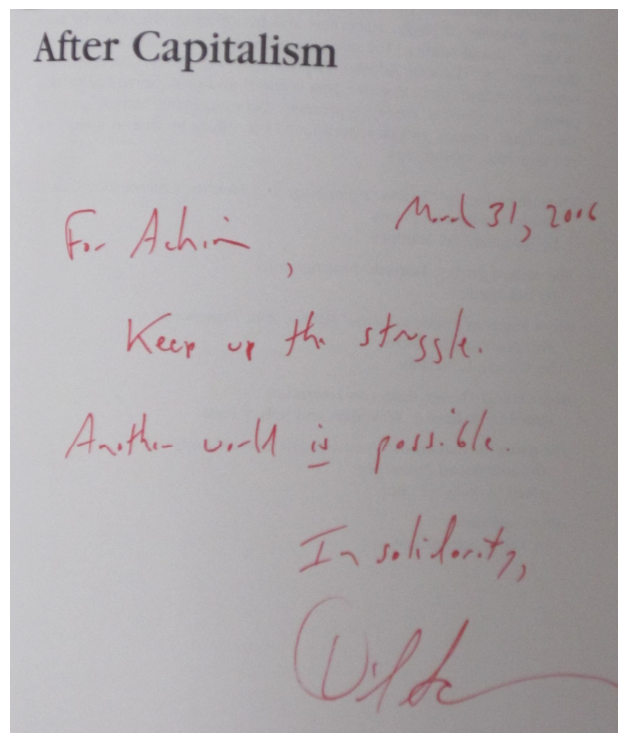 After Capitalism
For Achim,
March 31, 2006
Keep up the struggle.
Another world is possible.
In solidarity,